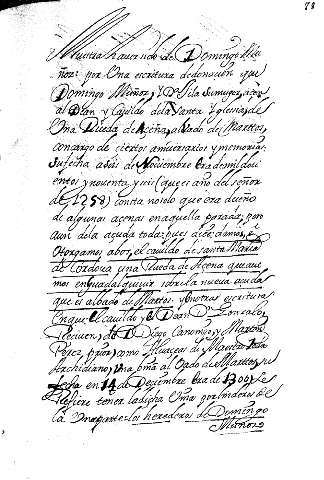 78
Muestra haver sido de Domingo Mu
ñoz: por Una escritura dedonacion que
Domingo Muñoz, y Dª Gila sumuger, acen
al Dean y Cavildo de la Santa Yglesia, de
Una Rueda de Aceña, al Vado de Marttos,
concargo de ciertos anivesarios y memorias.
su fecha a seis de Noviembre Era de mil doci
entos y noventa y seis (que es año del señor
de 1258) consta no solo que era dueño
de algunas acenas en aquella parada, pero
aun de la azuda toda; pues dice: damos, é
Otorgamos a bos, el cavildo de santa Maria
de Cordova una Rueda de Azena que ave
mos en guadalquivir sobre la nueva azuda
que es al bado de Marttos. y en otras escrituras
En que el cavildo, y el Dean Dn Gonzalo,
y Diego Canonigo, y
Perez prior, como Alvaceas de
Archidiano, Una al Vado de Marttos, su
fecha en 14 de Dizembre Era de 1300, se
Refiere tener la dicha por linderos de
la Una parte: los herederos de Domingo
Muñoz